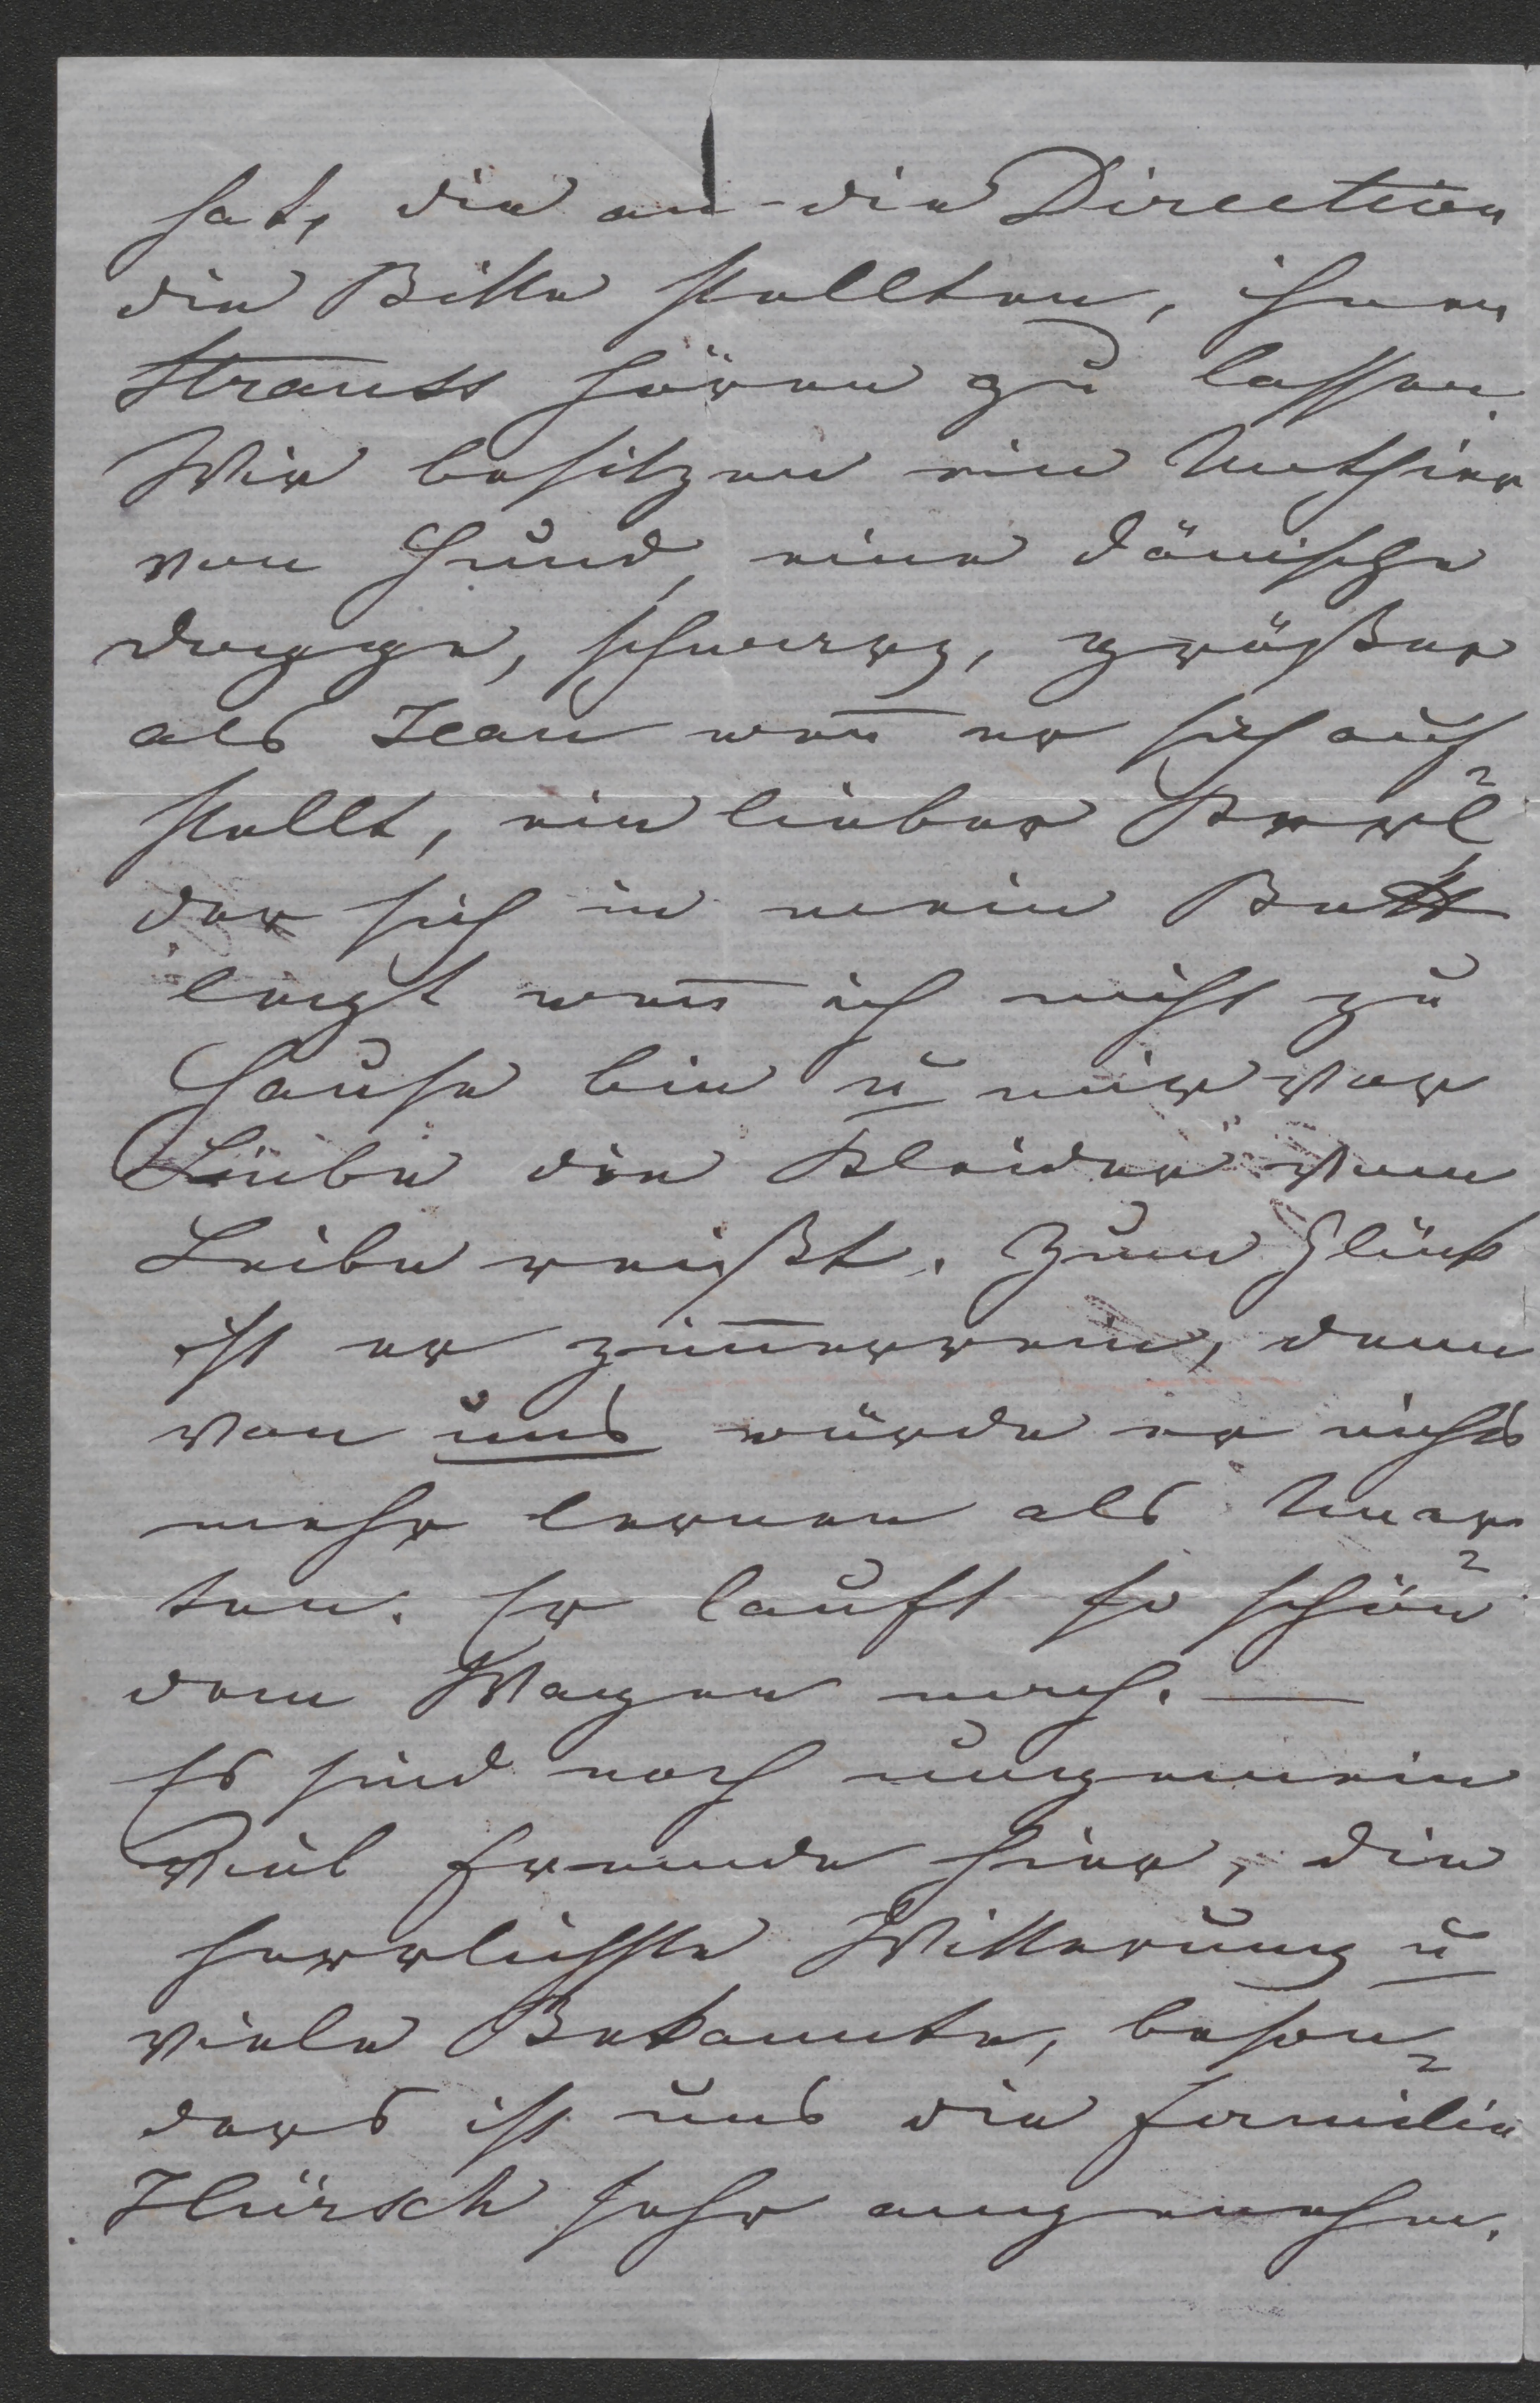 hat, die an die Direction
die Bitte stellten, ihnen
Strauss hören zu lassen.
Wir besitzen ein Unthier
von Hund, eine dänische
Dogge, schwarz, größer
als Jean, wen̄ er sich auf
stellt, ein lieber Kerl,
der sich in mein Bett
legt wen̄ ich nicht zu
Hause bin u mir vor
Liebe die Kleider vom
Leibe reißt. Zum Glück
ist er zim̄errein, denn
von uns würde er nichts
mehr lernen als Unar-
ten. Er lauft so schön
dem Wagen nach. —
Es sind noch ungemein
Viel Fremde hier, die
herrlichste Witterung u
viele Bekannte, beson-
ders ist uns die Familie
sehr angenehm.